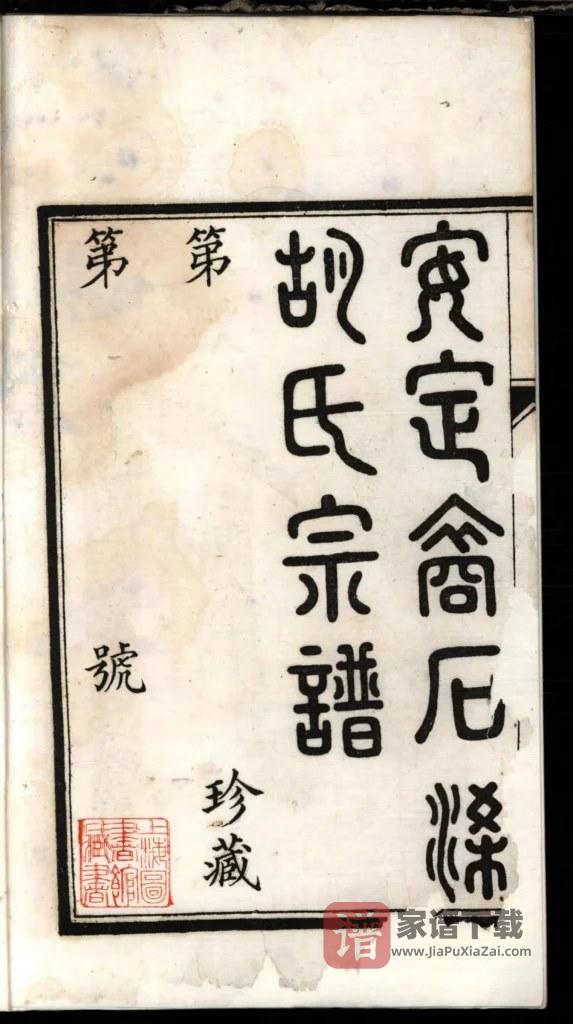 安定裔
胡氏宗譜
第
珍藏
第
號
上海圖
書館
藏書
谱
家谱下载
www.JiaPuXiaZai.com